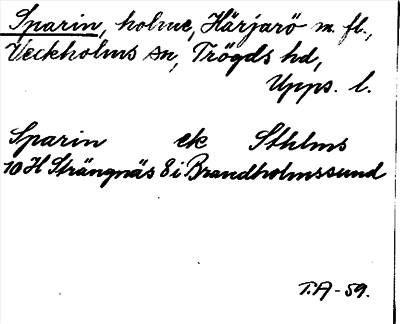 Sparin, holme, Härjarö m. fl.,
Veckholms sn, Trögds hd,
Upps. l.
Sparin ek Sthlms
10H Strängnäs 8i Brandholmssund
T.A-59.